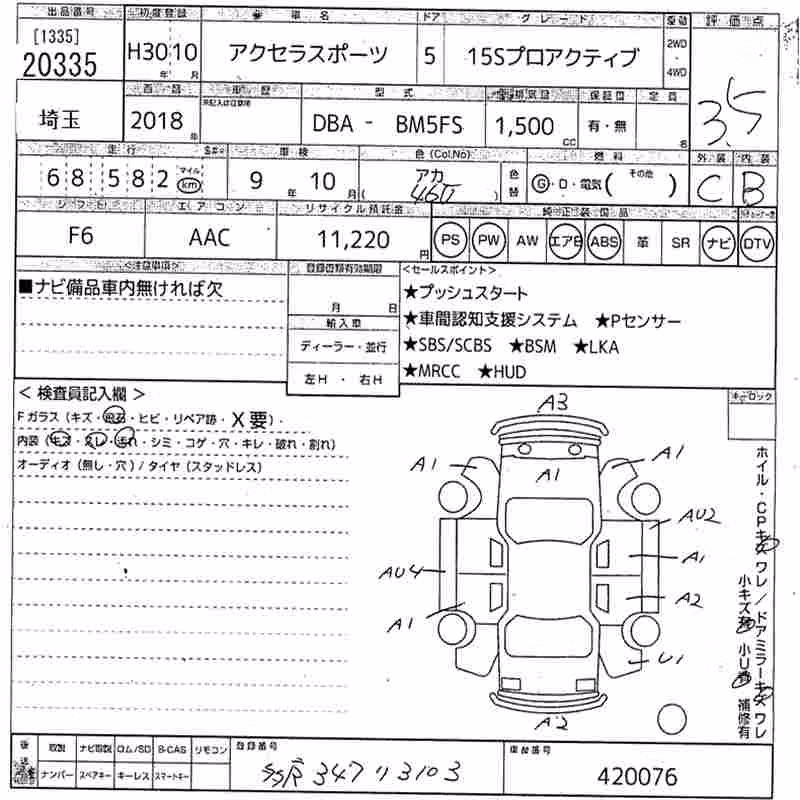 出品番号 初度登録 車名 ドア グレード 評価点
[1335]
20335 H30 10 アクセラスポーツ 5 15Sプロアクティブ 2WD ・ 4WD
年 月
車歴 型式 排気量 定員
埼玉 2018年 DBA - BM5FS 1,500 cc 有・無 名 3.5
走行 車検 色 (Col.No) 色替 燃料 外装 内装
68582 マイル km 9年 10月 アカ 46V G・D・電気( その他 ) C B
シフト エアコン リサイクル預託金 純正装備品
F6 AAC 11,220円 PS PW AW エアB ABS 革 SR ナビ DTV
<注意事項> 登録書類有効期限 <セールスポイント>
■ナビ備品車内無ければ欠
月 日
★プッシュスタート
輸入車
★車間認知支援システム ★Pセンサー
ディーラー・並行
★SBS/SCBS ★BSM ★LKA
左H・右H
★MRCC ★HUD
<検査員記入欄>
Fガラス(キズ・飛石・ヒビ・リペア跡・X要)・
内装(キズ・スレ・汚れ・シミ・コゲ・穴・キレ・破れ・割れ)
オーディオ(無し・穴)/タイヤ(スタッドレス)
キーロック
A3
A1 A1 A1
AU2
A1
AU4 A2
A1
U1
A2
ホイル・CPキズ ワレ/ドアミラーキズ ワレ
小キズ 小U 補修有
後送 取説 ナビ取説 ロム/SD B-CAS リモコン 登録番号 車台番号
ナンバー スペアキー キーレス スマートキー 347 3103 420076